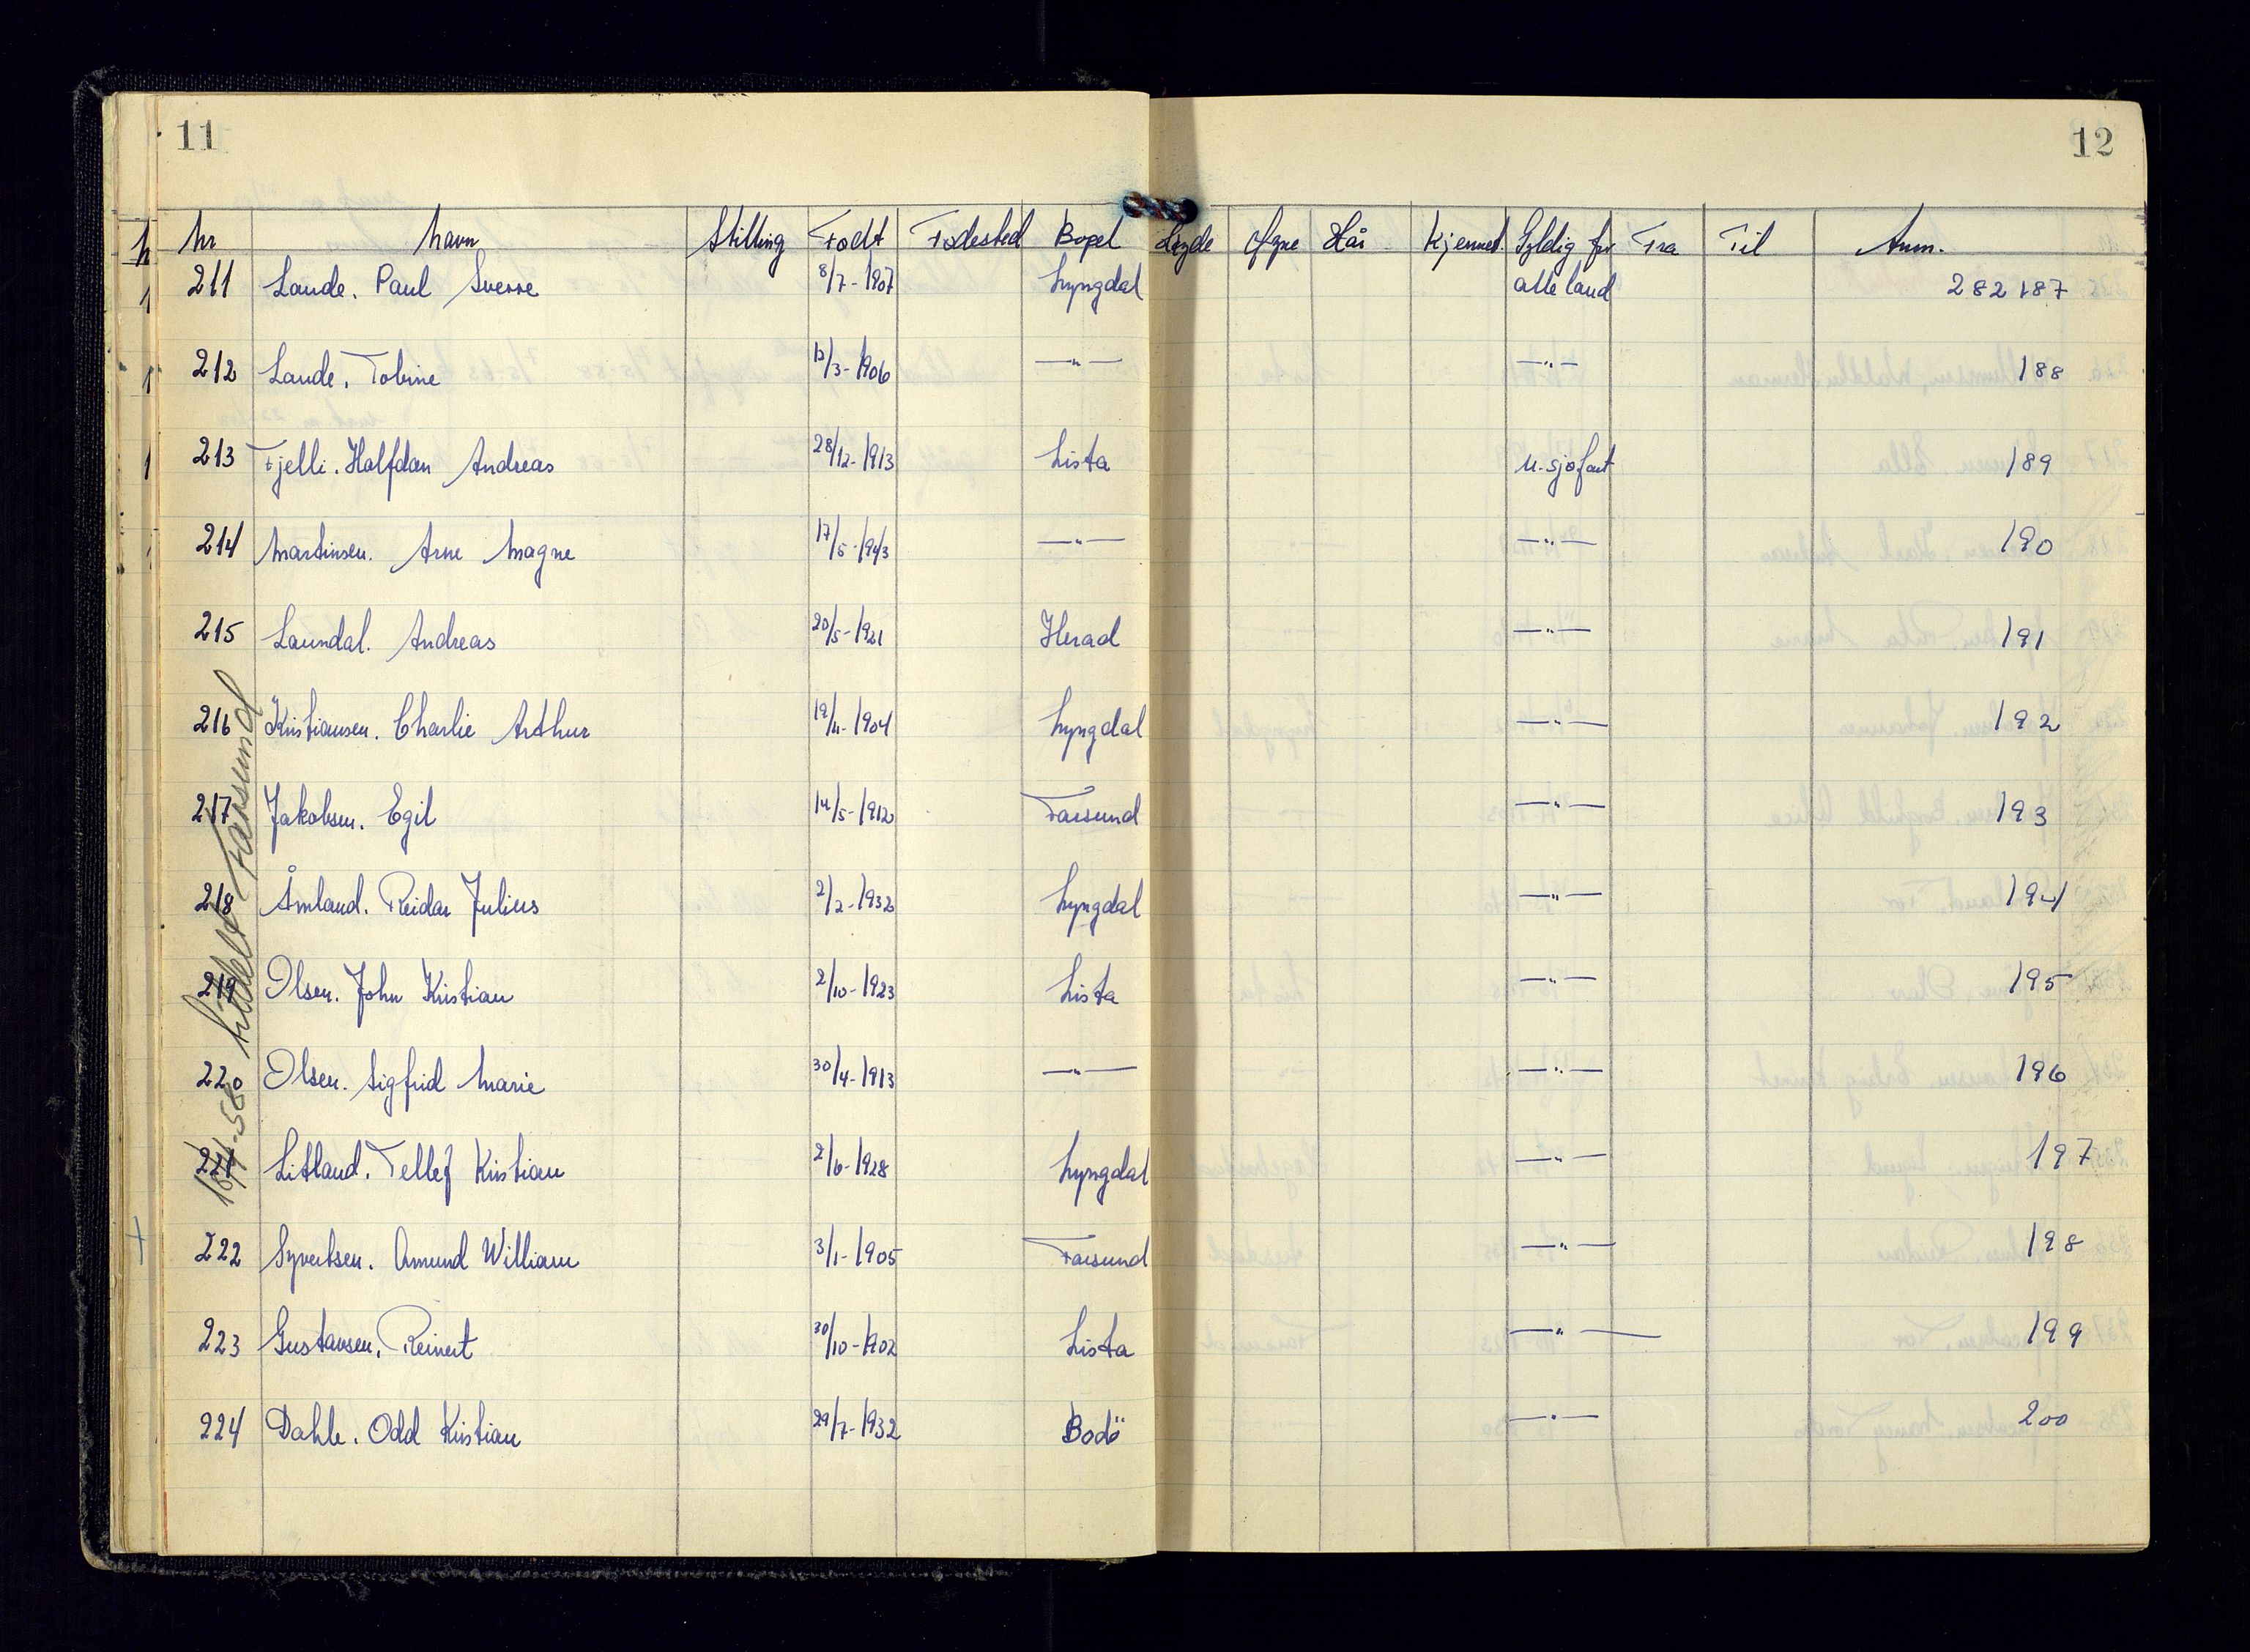 11
12
Nr Navn Stilling Födt Födested Bopel Høyde Øyne Hår Kjennet. Gyldig for Fra Til Anm.
211 Laude. Paul Sverre 8/7-1907 Lyngdal alle land 282187
212 Laude. Tobine 12/3-1906 —"— —"— 188
213 Fjelli. Halfdan Andreas 28/12-1913 Lista u-sjøfart 189
214 Martinsen. Arne Magne 17/5-1943 —"— —"— 190
215 Laundal. Andreas 20/5-1921 Herad —"— 191
216 Kristiansen. Charlie Arthur 19/11-1904 Lyngdal —"— 192
217 Jakobsen. Egil 14/5-1912 Farsund —"— 193
218 Åmland. Reidar Julius 2/2-1932 Lyngdal —"— 194
219 Olsen. John Kristian 2/10-1923 Lista —"— 195
220 Olsen. Sigfrid Marie 30/4-1913 —"— —"— 196
221 Litland. Tellef Kristian 2/6-1928 Lyngdal —"— 197
222 Syvertsen. Amund William 3/1-1905 Farsund —"— 198
223 Gustavsen. Reinert 30/10-1902 Lista —"— 199
224 Dahle. Odd Kristian 29/7-1932 Bodö —"— 200
Farsund